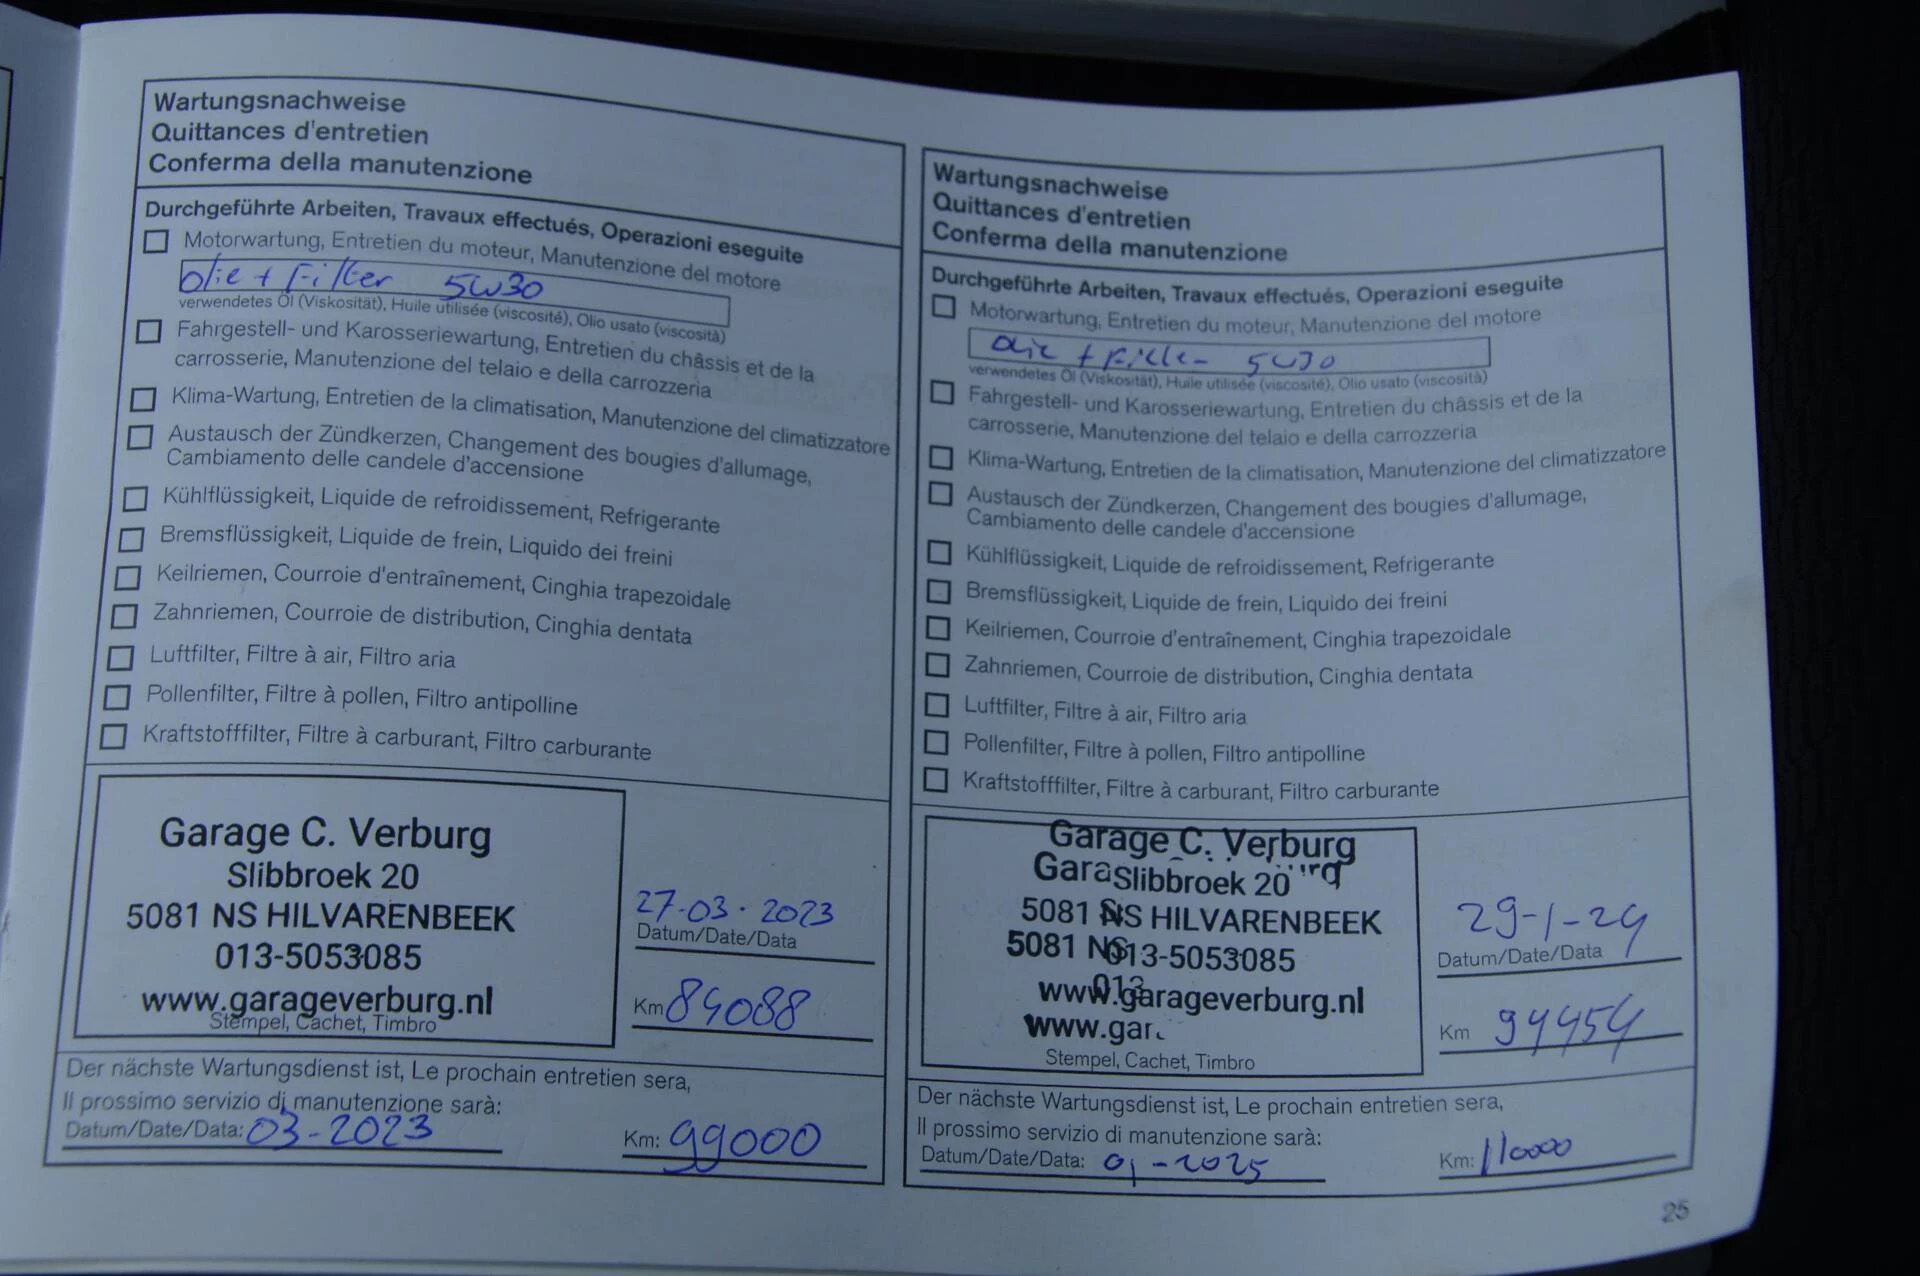 Wartungsnachweise
Quittances d'entretien
Conferma della manutenzione
Durchgeführte Arbeiten, Travaux effectués, Operazioni eseguite
Motorwartung, Entretien du moteur, Manutenzione del motore
Olie + Filter 5W30
verwendetes Öl (Viskosität), Huile utilisée (viscosité), Olio usato (viscosità)
Fahrgestell- und Karosseriewartung, Entretien du châssis et de la
carrosserie, Manutenzione del telaio e della carrozzeria
Klima-Wartung, Entretien de la climatisation, Manutenzione del climatizzatore
Austausch der Zündkerzen, Changement des bougies d'allumage,
Cambiamento delle candele d'accensione
Kühlflüssigkeit, Liquide de refroidissement, Refrigerante
Bremsflüssigkeit, Liquide de frein, Liquido dei freini
Keilriemen, Courroie d'entraînement, Cinghia trapezoidale
Zahnriemen, Courroie de distribution, Cinghia dentata
Luftfilter, Filtre à air, Filtro aria
Pollenfilter, Filtre à pollen, Filtro antipolline
Kraftstofffilter, Filtre à carburant, Filtro carburante
Garage C. Verburg
Slibbroek 20
5081 NS HILVARENBEEK
013-5053085
www.garageverburg.nl
Stempel, Cachet, Timbro
27-03-2023
Datum/Date/Data
Km 84088
Der nächste Wartungsdienst ist, Le prochain entretien sera,
Il prossimo servizio di manutenzione sarà:
Datum/Date/Data: 03-2023 Km: 99000
Wartungsnachweise
Quittances d'entretien
Conferma della manutenzione
Durchgeführte Arbeiten, Travaux effectués, Operazioni eseguite
Motorwartung, Entretien du moteur, Manutenzione del motore
Olie + Filter 5W30
verwendetes Öl (Viskosität), Huile utilisée (viscosité), Olio usato (viscosità)
Fahrgestell- und Karosseriewartung, Entretien du châssis et de la
carrosserie, Manutenzione del telaio e della carrozzeria
Klima-Wartung, Entretien de la climatisation, Manutenzione del climatizzatore
Austausch der Zündkerzen, Changement des bougies d'allumage,
Cambiamento delle candele d'accensione
Kühlflüssigkeit, Liquide de refroidissement, Refrigerante
Bremsflüssigkeit, Liquide de frein, Liquido dei freini
Keilriemen, Courroie d'entraînement, Cinghia trapezoidale
Zahnriemen, Courroie de distribution, Cinghia dentata
Luftfilter, Filtre à air, Filtro aria
Pollenfilter, Filtre à pollen, Filtro antipolline
Kraftstofffilter, Filtre à carburant, Filtro carburante
Garage C. Verburg
Slibbroek 20
5081 NS HILVARENBEEK
013-5053085
www.garageverburg.nl
www.gar
Stempel, Cachet, Timbro
29-1-24
Datum/Date/Data
Km 94454
Der nächste Wartungsdienst ist, Le prochain entretien sera,
Il prossimo servizio di manutenzione sarà:
Datum/Date/Data: 01-2025 Km: 110000
25